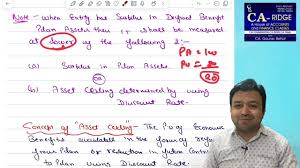 Note:- when Entity has Surplus in Defined Benefit
Plan Assets then it shall be measured
at lower of the following 2:-
PA = 100
(a) Surplus in Plan Assets.
20
OR
(b) Asset Ceiling determined by using
Discount Rate.
Concept of "Asset Ceiling":- The P.V of Economic
Benefits available in the form of refund
from Plan or reduction in future Contribution
to Plan using Discount Rate.
CA-RIDGE
A House of ACCOUNTS
and FINANCE CLASSES